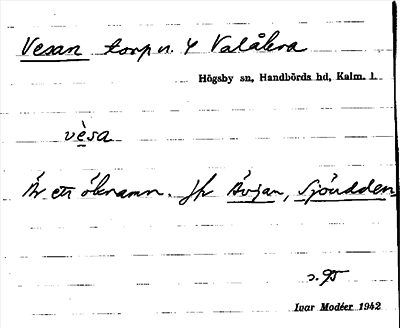 Vesan torp u. Y Valåkra
Högsby sn, Handbörds hd, Kalm. l.
vèsa
Är ett öknamn. Jfr Åvjan, Sjöudden
s. 95
Ivar Modéer 1942